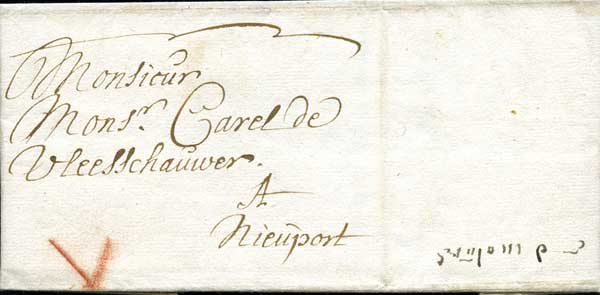 Monsieur
Monsr. Carel de
Vleesschauwer.
A
Nieuport